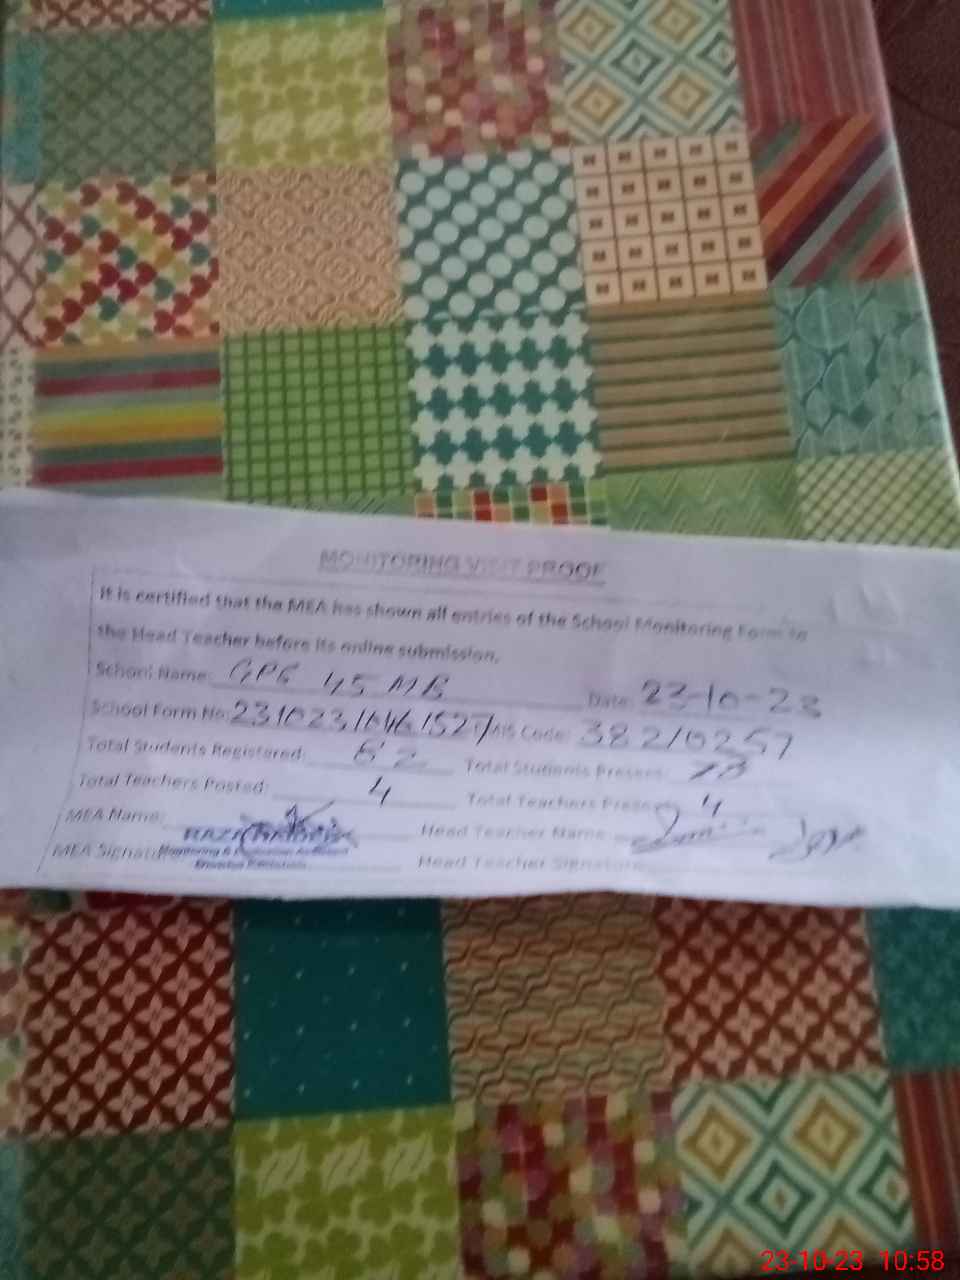 MONITORING VISIT PROOF
It is certified that the MEA has shown all entries of the School Monitoring Form to
the Head Teacher before its online submission.
School Name: GPS 45 MB Date: 23-10-23
School Form No: Code: 38210257
Total Students Registered: 82 Total Students Present:
Total Teachers Posted: 4 Total Teachers Present: 4
MEA Name: Head Teacher Name:
Monitoring & Evaluation Assistant
MEA Signature Head Teacher Signature
23-10-23 10:58